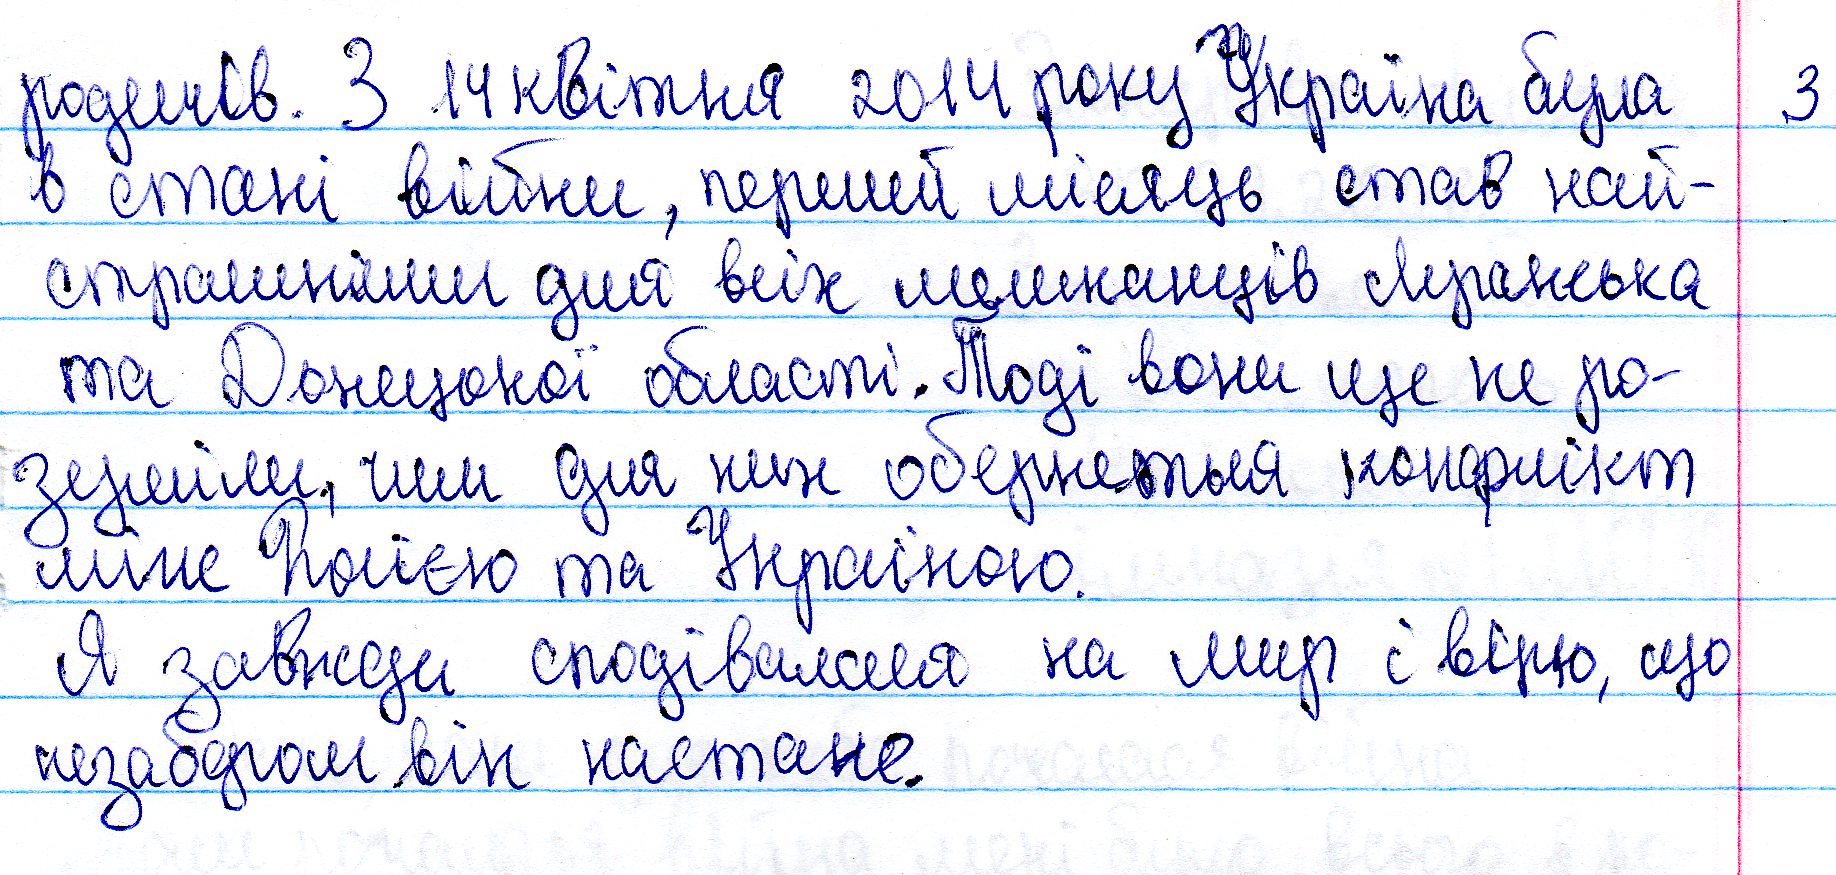 родичів. З 14 квітня 2014 року Україна була 3
в стані війни, перший місяць став най-
страшнішим для всіх мешканців Луганська
та Донецької області. Тоді вони ще не ро-
зуміли, чим для них обернеться конфлікт
між Росією та Україною.
Я завжди сподівалася на мир і вірю, що
незабаром він настане.